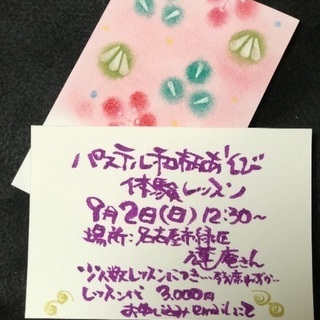 パステル和柄あそび
体験レッスン
9月2日(日)12:30〜
場所:名古屋市緑区
庵さん
少人数レッスンにつき…残席わずか…
レッスン代 3,000円
お申し込みemailにて